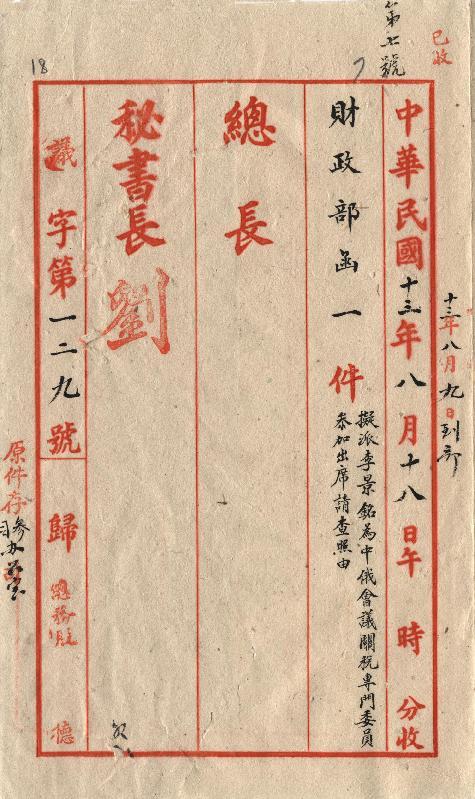 已收
第七號
18
十三年八月九日到部
中華民國十三年八月十八日午時分收
財政部函一件
擬派李景銘為中俄會議關稅專門委員
參加出席請查照由
總長
秘書長劉
議字第一二九號
歸總務廳德
原件存